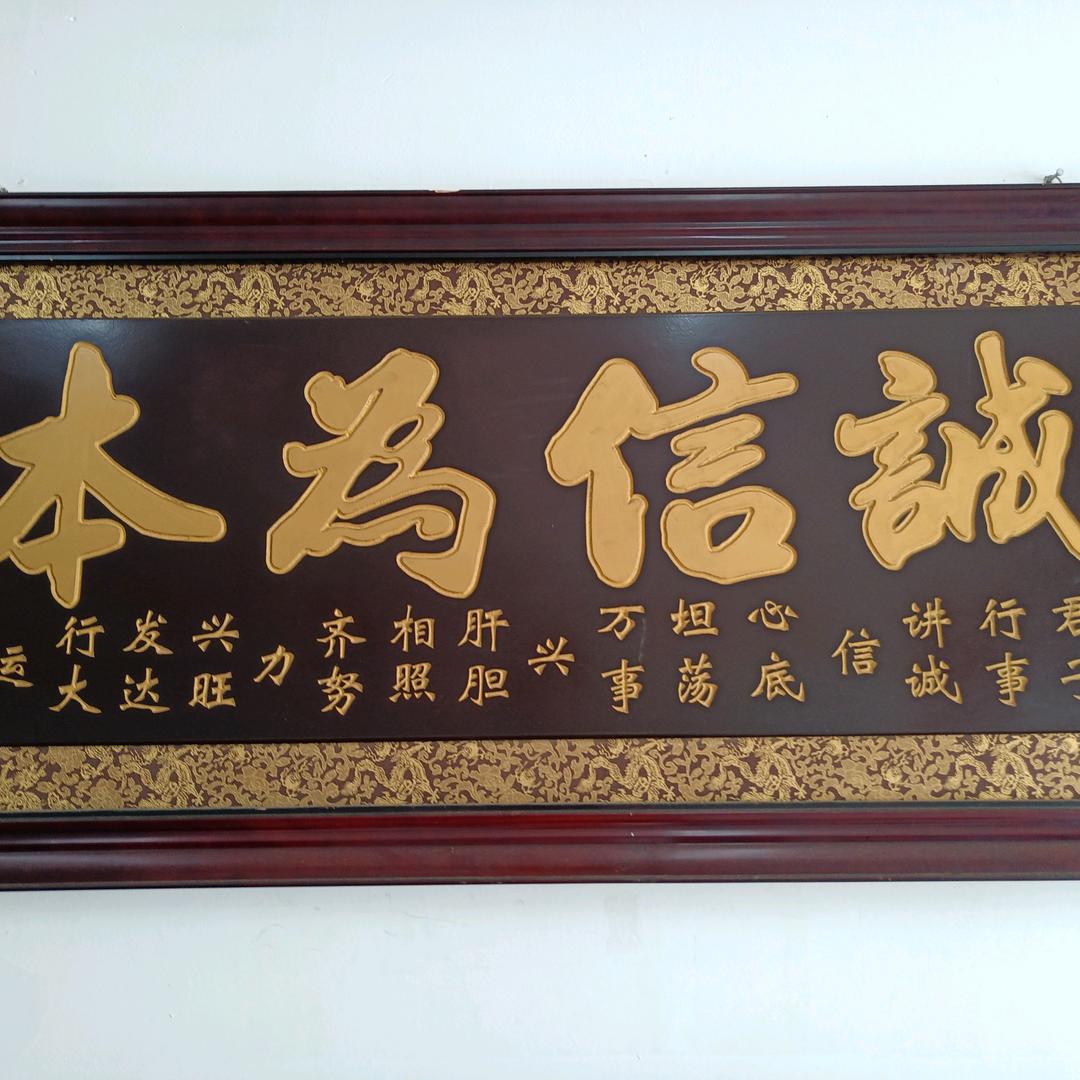 誠信為本
君子行事讲诚信
心底坦荡万事兴
肝胆相照齐努力
兴旺发达行大运